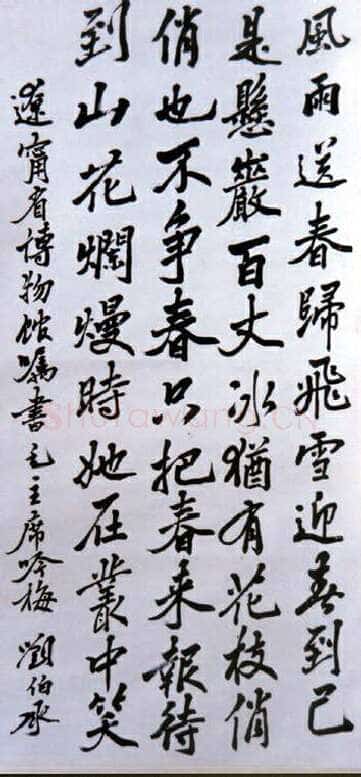 風雨送春歸飛雪迎春到已
是懸巖百丈冰猶有花枝俏
俏也不争春只把春来報待
到山花爛熳時她在叢中笑
遼甯省博物館嘱書毛主席咏梅 劉伯承